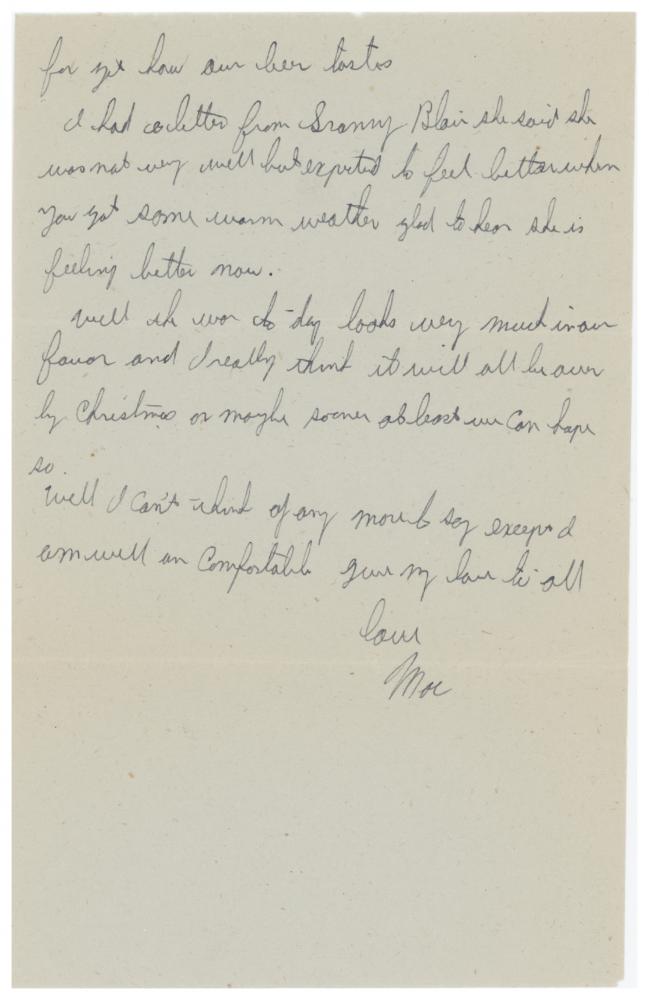 for get how our beer tastes
I had a letter from Granny Blair she said she
was not very well but expected to feel better when
you got some warm weather glad to hear she is
feeling better now.
Well the war to-day looks very much in our
favor and I really think it will all be over
by Christmas or maybe sooner at least we can hope
so.
Well I can't think of any more to say except I
am well an comfortable give my love to all
Love
Moe